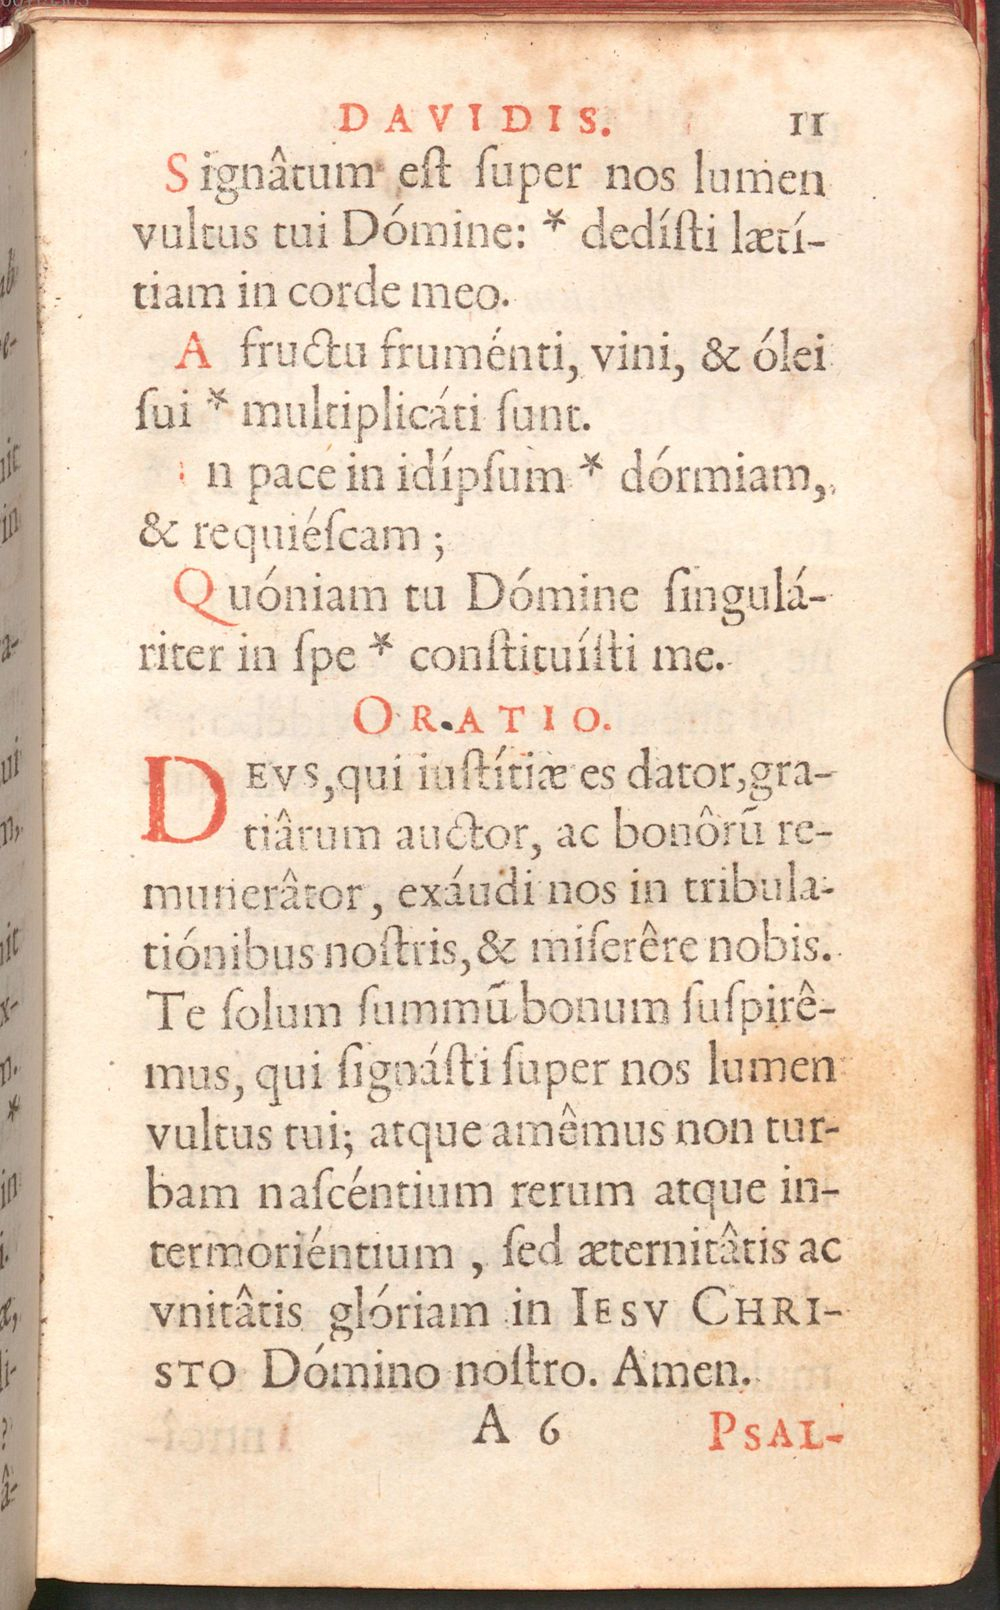 DAVIDIS. 11
Signâtum eſt ſuper nos lumen
vultus tui Dómine: * dedíſti lætí-
tiam in corde meo.
A fructu fruménti, vini, & ólei
ſui * multiplicáti ſunt.
In pace in idípſum * dórmiam,
& requiéſcam ;
Quóniam tu Dómine ſingulá-
riter in ſpe * conſtituíſti me.
ORATIO.
DEVS, qui iuſtítiæ es dator, gra-
tiârum auctor, ac bonôrũ re-
munerâtor, exáudi nos in tribula-
tiónibus noſtris, & miſerêre nobis.
Te ſolum ſummũ bonum ſuſpirê-
mus, qui ſignáſti ſuper nos lumen
vultus tui; atque amêmus non tur-
bam naſcéntium rerum atque in-
termoriéntium , ſed æternitâtis ac
vnitâtis glóriam in IESV CHRI-
STO Dómino noſtro. Amen.
A 6 PSAL-